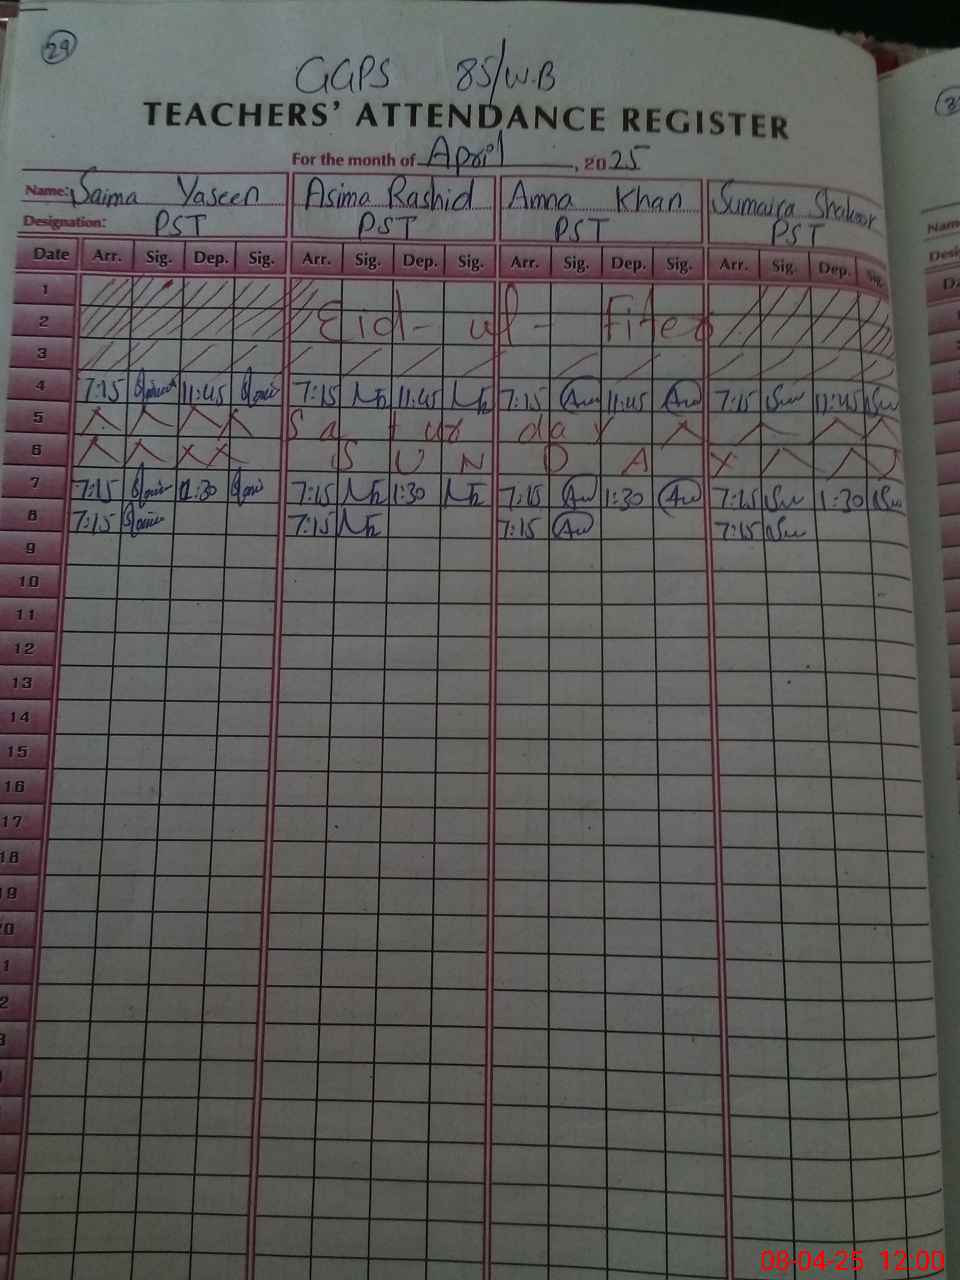 29
GGPS 85/W.B
TEACHERS' ATTENDANCE REGISTER
For the month of April, 2025
Name: Saima Yaseen Asima Rashid Amna Khan Sumaira Shakoor
Designation: PST PST PST PST
Date Arr. Sig. Dep. Sig. Arr. Sig. Dep. Sig. Arr. Sig. Dep. Sig. Arr. Sig. Dep. Sig.
1
2 Eid-ul-Fiter
3
4 7:15 11:45 7:15 11:45 7:15 11:45 7:15 11:45
5 Saturday
6 SUNDA
7 7:15 1:30 7:15 1:30 7:15 1:30 7:15 1:30
8 7:15 7:15 7:15 7:15
9
10
11
12
13
14
15
16
17
18
19
0
1
2
3
Name
Desig
Da
08-04-25 12:00